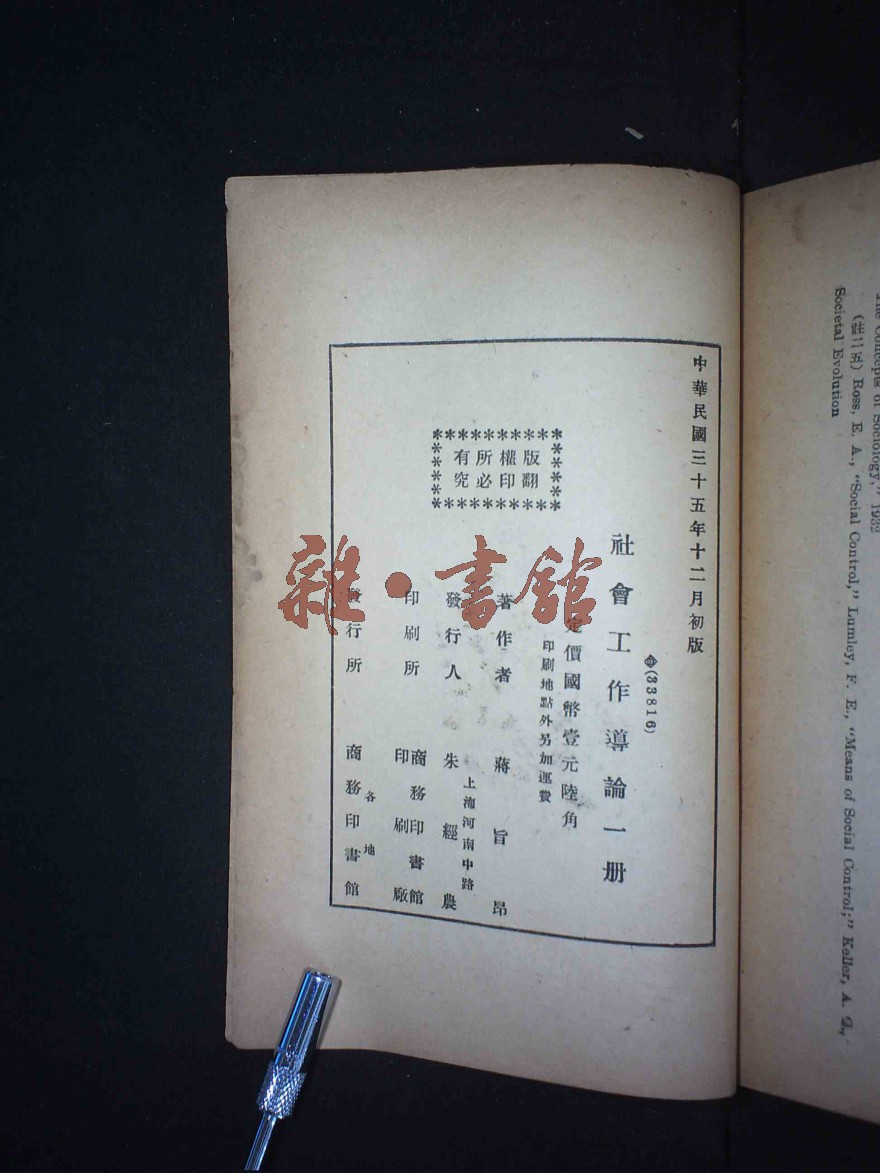 The Concepts of Sociology," 1932
(註二五) Ross, E. A., "Social Control," Lumley, F. E., "Means of Social Control;" Keller, A. G.,
Societal Evolution
中華民國三十五年十二月初版
(33816)
社會工作導論一册
定價國幣壹元陸角
印刷地點外另加運費
版權所有
翻印必究
著作者 蔣旨昂
發行人 朱經農
上海河南中路
印刷所 商務印書館
印刷廠
發行所 各地
商務印書館
雜·書館